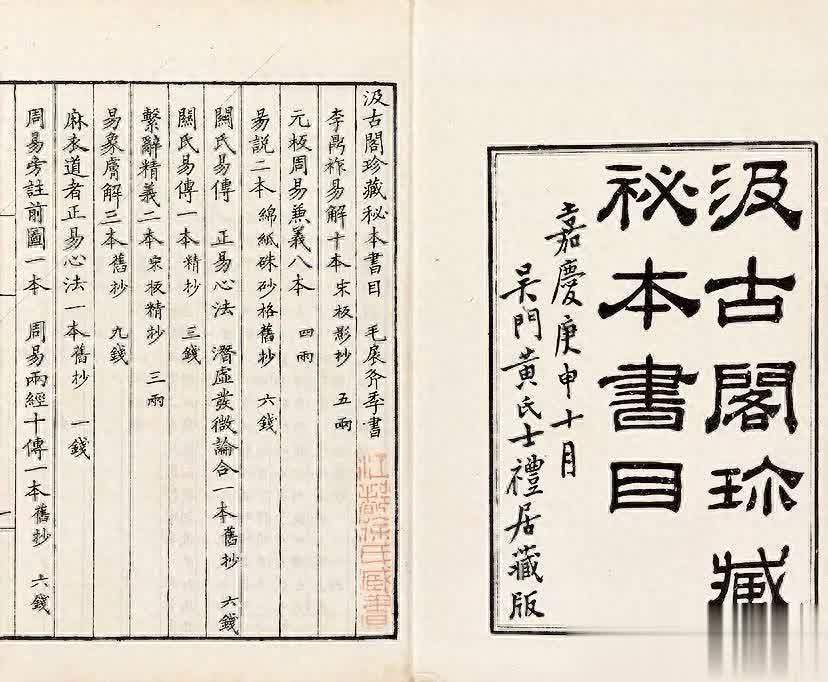 汲古閣珍藏
秘本書目
嘉慶庚申十月
吳門黃氏士禮居藏版
汲古閣珍藏秘本書目 毛扆斧季書
李鼎祚易解十本 宋板影抄 五兩
元板周易兼義八本 四兩
易說二本 綿紙硃砂格舊抄 六錢
關氏易傳 正易心法 潛虛發微論合一本 舊抄 六錢
關氏易傳一本 精抄 三錢
繫辭精義二本 宋板精抄 三兩
易象膚解三本 舊抄 九錢
麻衣道者正易心法一本 舊抄 一錢
周易旁註前圖一本 周易兩經十傳一本 舊抄 六錢
徐氏藏書